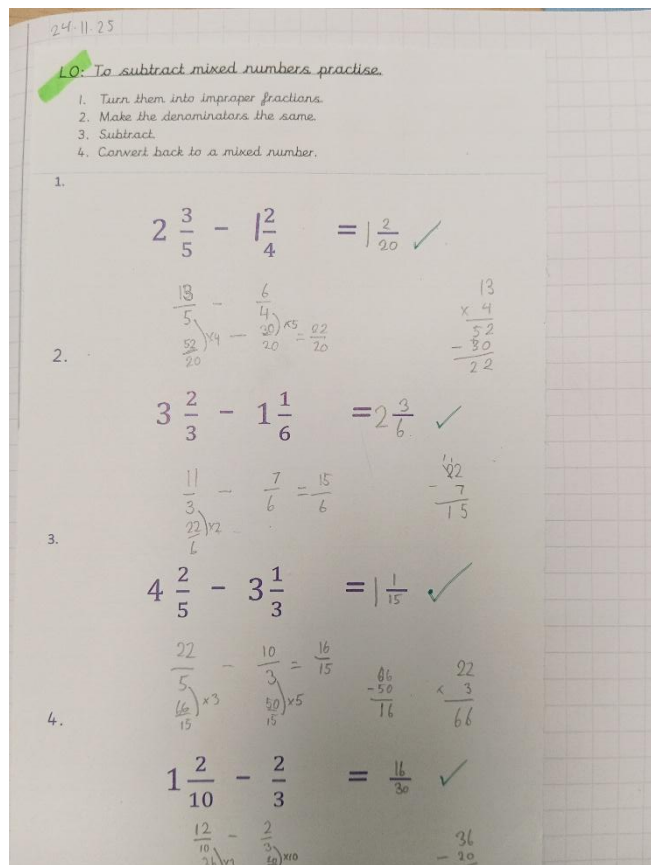 24.11.25
LO: To subtract mixed numbers practise.
1. Turn them into improper fractions.
2. Make the denominators the same.
3. Subtract.
4. Convert back to a mixed number.
1.
2 3/5 - 1 2/4 = 1 2/20 ✓
13/5 - 6/4
52/20 )x4 - 30/20 )x5 = 22/20
13
x 4
52
- 30
22
2.
3 2/3 - 1 1/6 = 2 3/6 ✓
11/3 - 7/6 = 15/6
22/6 )x2
22
- 7
15
3.
4 2/5 - 3 1/3 = 1 1/15 ✓
22/5 - 10/3 = 16/15
66/15 )x3 50/15 )x5
66
-50
16
22
x 3
66
4.
1 2/10 - 2/3 = 16/30 ✓
12/10 - 2/3
)x10
36
- 20